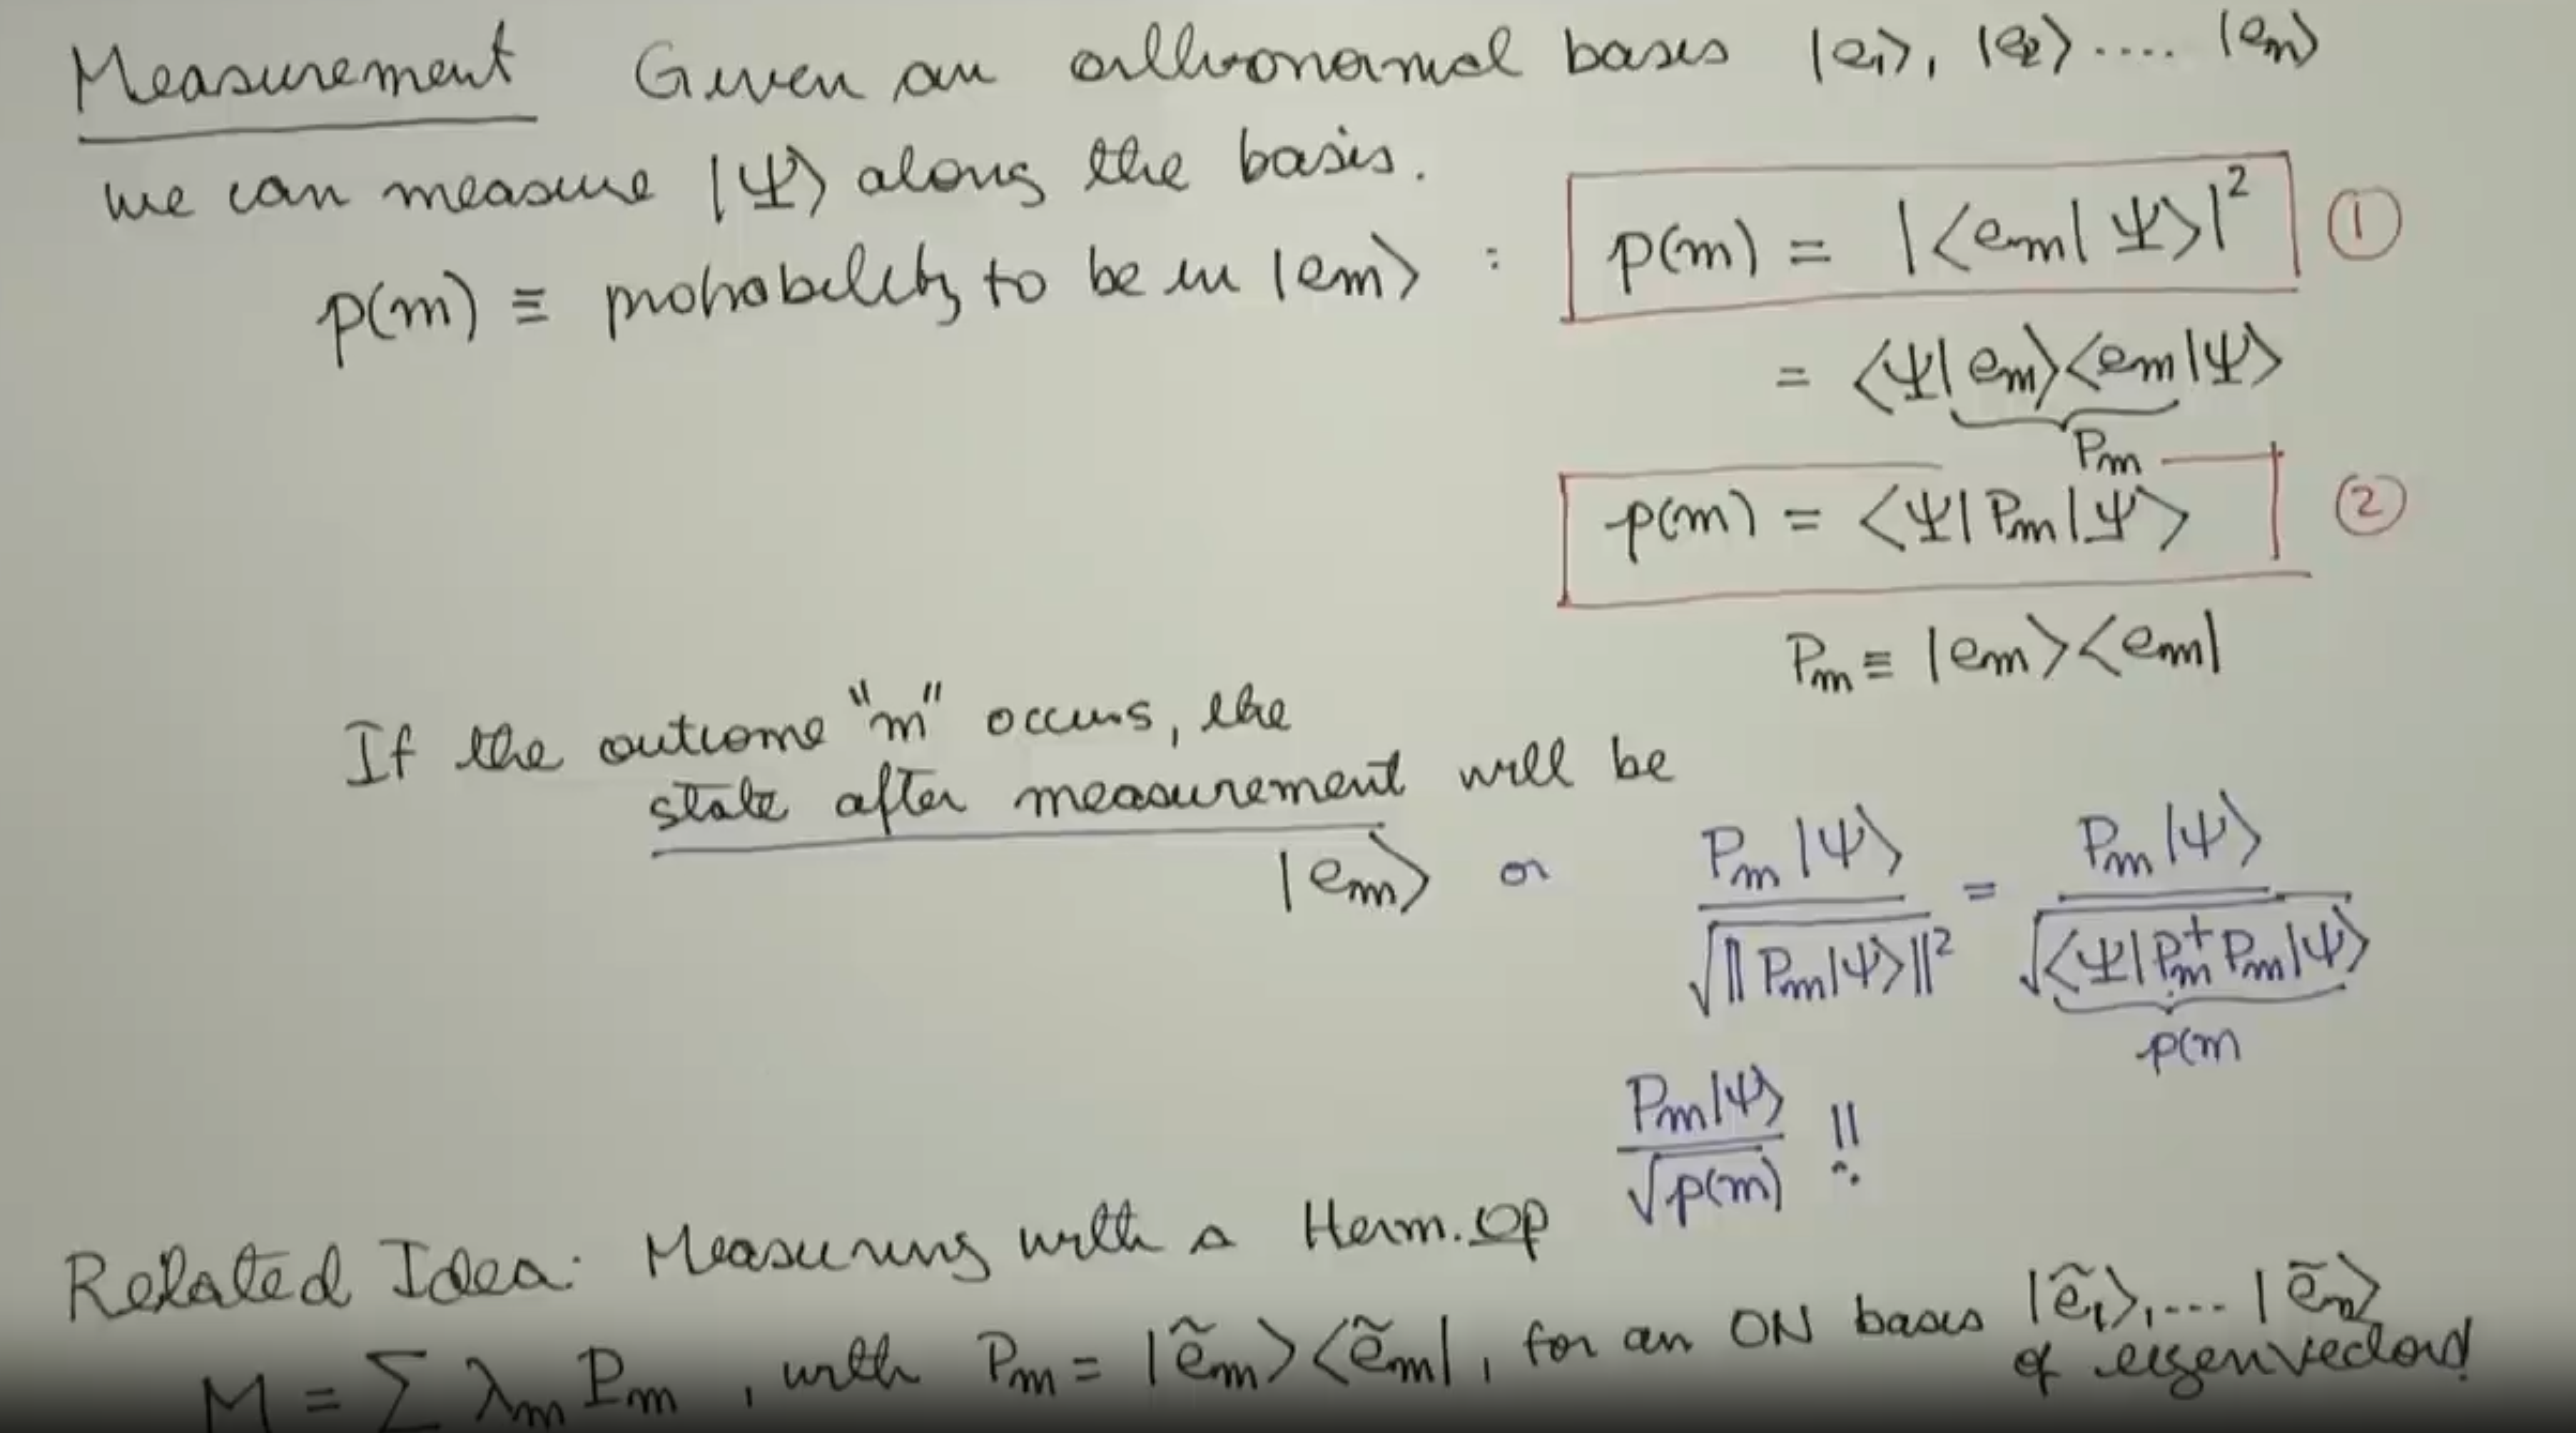 Measurement Given an orthonormal basis |e₁⟩, |e₂⟩ .... |eₙ⟩
we can measure |Ψ⟩ along the basis.
p(m) ≡ probability to be in |em⟩ : p(m) = |⟨em|Ψ⟩|² ①
= ⟨Ψ|em⟩⟨em|Ψ⟩
Pm
p(m) = ⟨Ψ|Pm|Ψ⟩ ②
Pm ≡ |em⟩⟨em|
If the outcome "m" occurs, the
state after measurement will be
|em⟩ or Pm|Ψ⟩ / √‖Pm|Ψ⟩‖² = Pm|Ψ⟩ / √⟨Ψ|Pm†Pm|Ψ⟩
p(m
Pm|Ψ⟩ / √p(m) !!
Related Idea: Measuring with a Herm. Op
M = ∑ λm Pm , with Pm = |ẽm⟩⟨ẽm|, for an ON basis |ẽ₁⟩,.... |ẽₙ⟩
of eigenvectors!